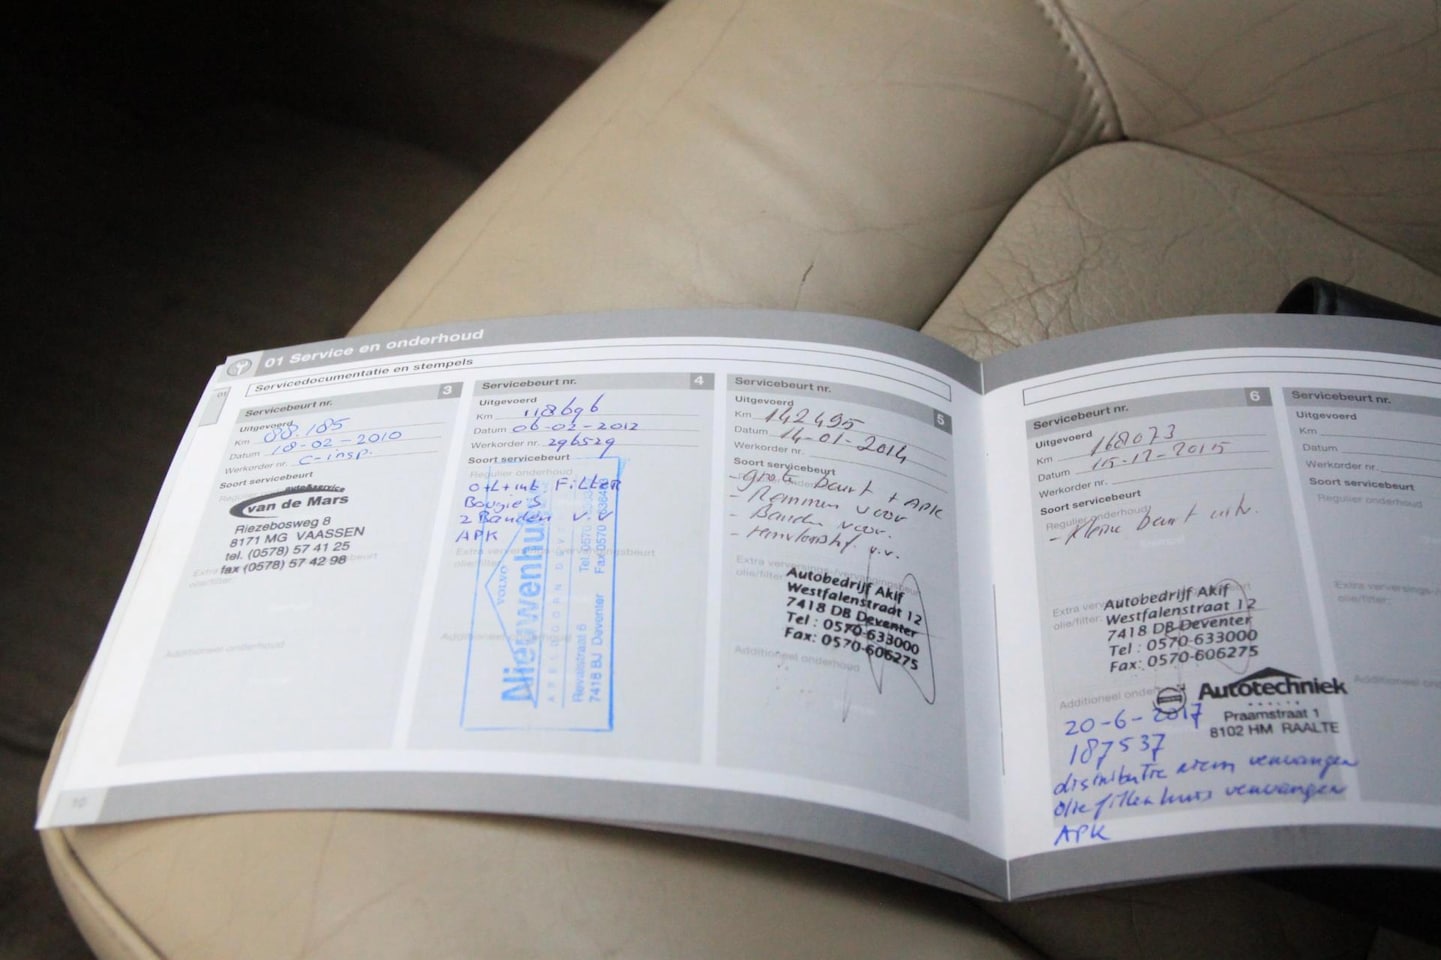 01 Service en onderhoud
Servicedocumentatie en stempels
01
Servicebeurt nr. 3
Uitgevoerd
Km 88.185
Datum 18-02-2010
Werkorder nr. C-insp.
Soort servicebeurt
auto&service
van de Mars
Riezebosweg 8
8171 MG VAASSEN
tel. (0578) 57 41 25
fax (0578) 57 42 98
Additioneel onderhoud
10
Servicebeurt nr. 4
Uitgevoerd
Km 118696
Datum 06-02-2012
Werkorder nr. 296529
Soort servicebeurt
Regulier onderhoud
Filter
Bougie's
2 Banden v.v
APK
Extra verversings-/vervangingsbeurt
olie/filter
Additioneel onderhoud
VOLVO
Nieuwenhuis
APELDOORN
Revalstraat 6
7418 BJ Deventer
Tel. 0570
Fax 0570
Servicebeurt nr.
5
Uitgevoerd
Km 142495
Datum 14-01-2014
Werkorder nr.
Soort servicebeurt
- grote beurt + APK
- Remmen voor
- Banden voor.
Extra verversings-/vervangingsbeurt
olie/filter
Autobedrijf Akif
Westfalenstraat 12
7418 DB Deventer
Tel : 0570-633000
Fax: 0570-606275
Additioneel onderhoud
Servicebeurt nr. 6
Uitgevoerd
Km 168073
Datum 15-12-2015
Werkorder nr.
Soort servicebeurt
Regulier onderhoud
- Kleine beurt
Extra
olie/filter
Autobedrijf Akif
Westfalenstraat 12
7418 DB Deventer
Tel : 0570-633000
Fax: 0570-606275
Additioneel onderhoud
Autotechniek
RAALTE
Praamstraat 1
8102 HM RAALTE
20-6-2017
187537
distributie riem vervangen
olie filter huis vervangen
APK
Servicebeurt nr.
Uitgevoerd
Km
Datum
Werkorder nr.
Soort servicebeurt
Regulier onderhoud
Extra verversings-
olie/filter
Additioneel